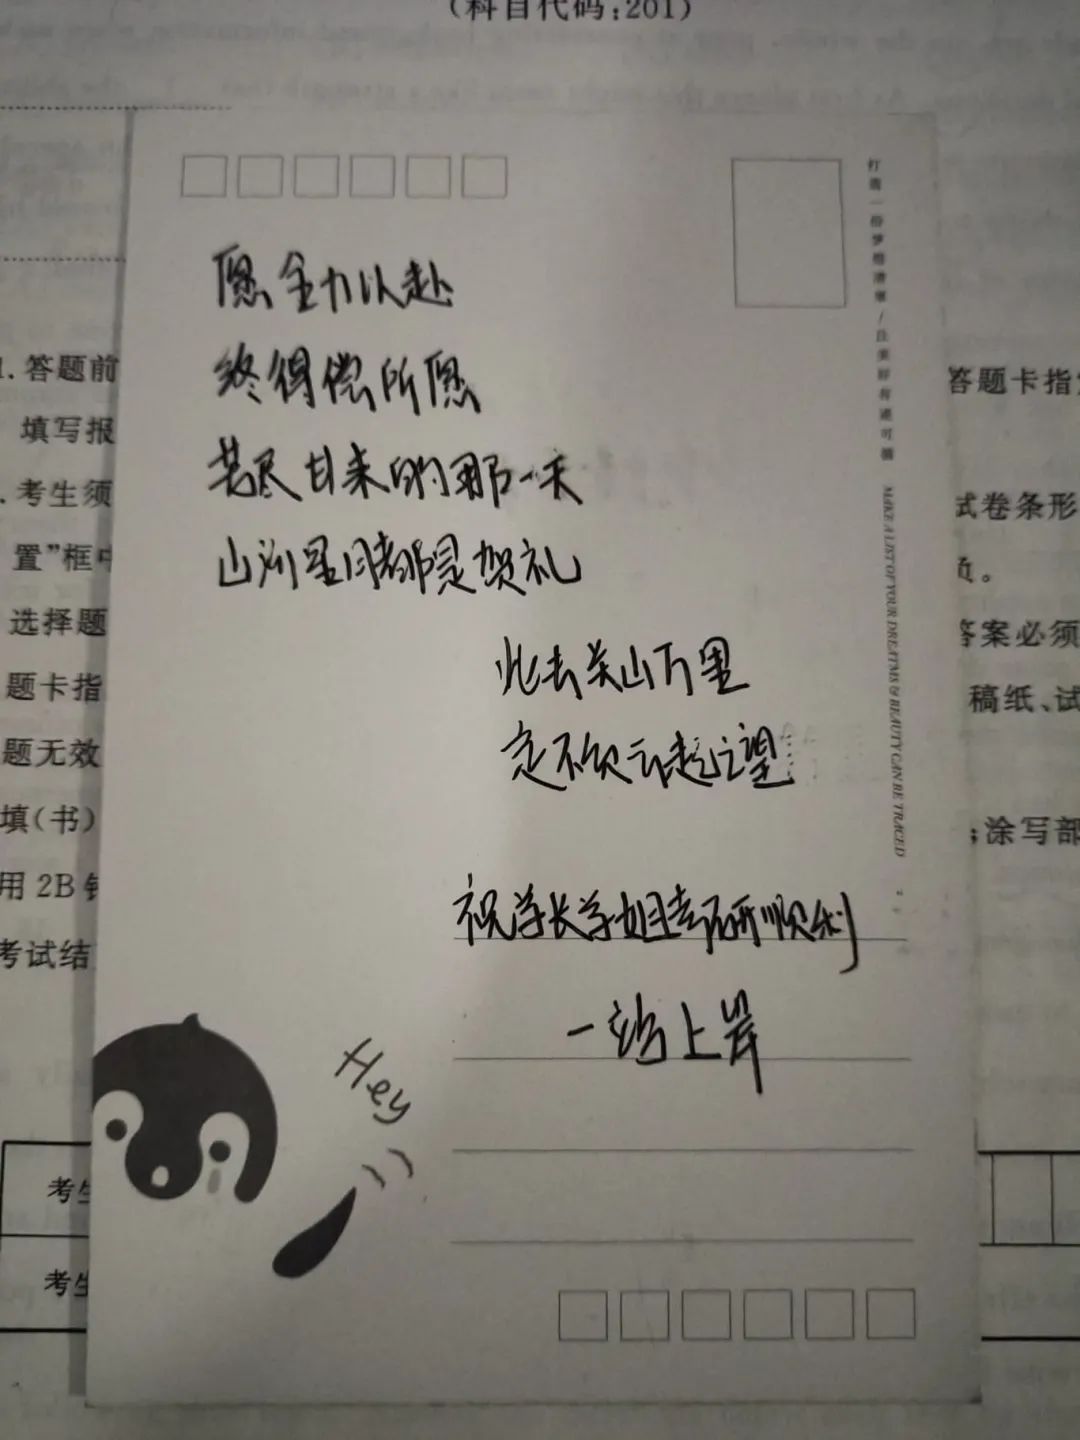 (科目代码:201)
愿全力以赴
终得偿所愿
苦尽甘来的那一天
山河星月都是贺礼
此去关山万里
定不负云起之望
祝学长学姐考研顺利
一站上岸
Hey
打造一份梦想清单/让美好有迹可循
MAKE A LIST OF YOUR DREATMS & BEAUTY CAN BE TRACED
1.答题前
填写报
.考生须
置”框中
选择题
题卡指
题无效
填(书)
用2B铅
考试结
考生
考生
答题卡指定
试卷条形
质。
答案必须
稿纸、试
;涂写部